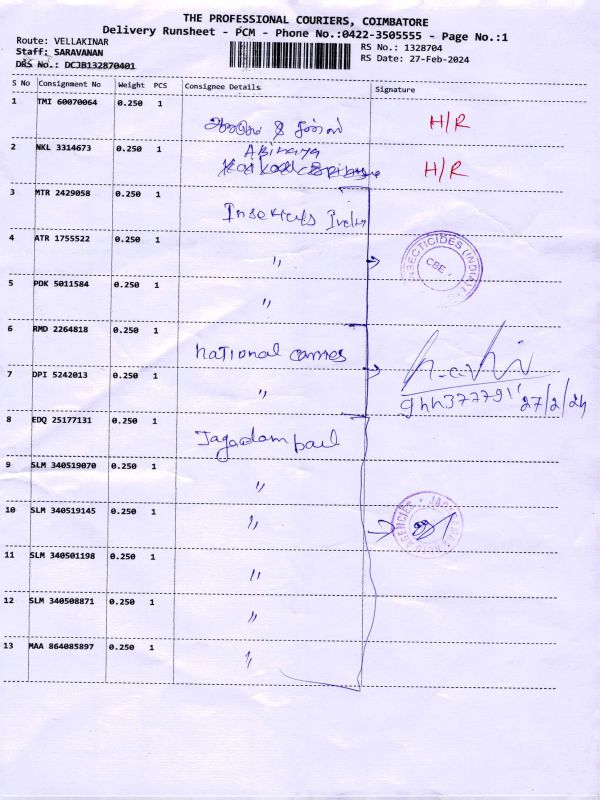 THE PROFESSIONAL COURIERS, COIMBATORE
Delivery Runsheet - PCM - Phone No.:0422-3505555 - Page No.:1
Route: VELLAKINAR
RS No.: 1328704
Staff: SARAVANAN
RS Date: 27-Feb-2024
DRS No.: DCJB132870401
S No Consignment No Weight PCS Consignee Details Signature
1 TMI 60070064 0.250 1
H/R
2 NKL 3314673 0.250 1 Abinaya
H/R
3 MTR 2429058 0.250 1
4 ATR 1755522 0.250 1 "
INSECTICIDES (INDIA)
CBE
5 PDK 5011584 0.250 1 "
6 RMD 2264818 0.250 1 National
7 DPI 5242013 0.250 1 "
27/2/24
8 EDQ 25177131 0.250 1
9 SLM 340519070 0.250 1 "
10 SLM 340519145 0.250 1 "
AGENCIES
11 SLM 340501198 0.250 1 "
12 SLM 340508871 0.250 1 "
13 MAA 864085897 0.250 1 "